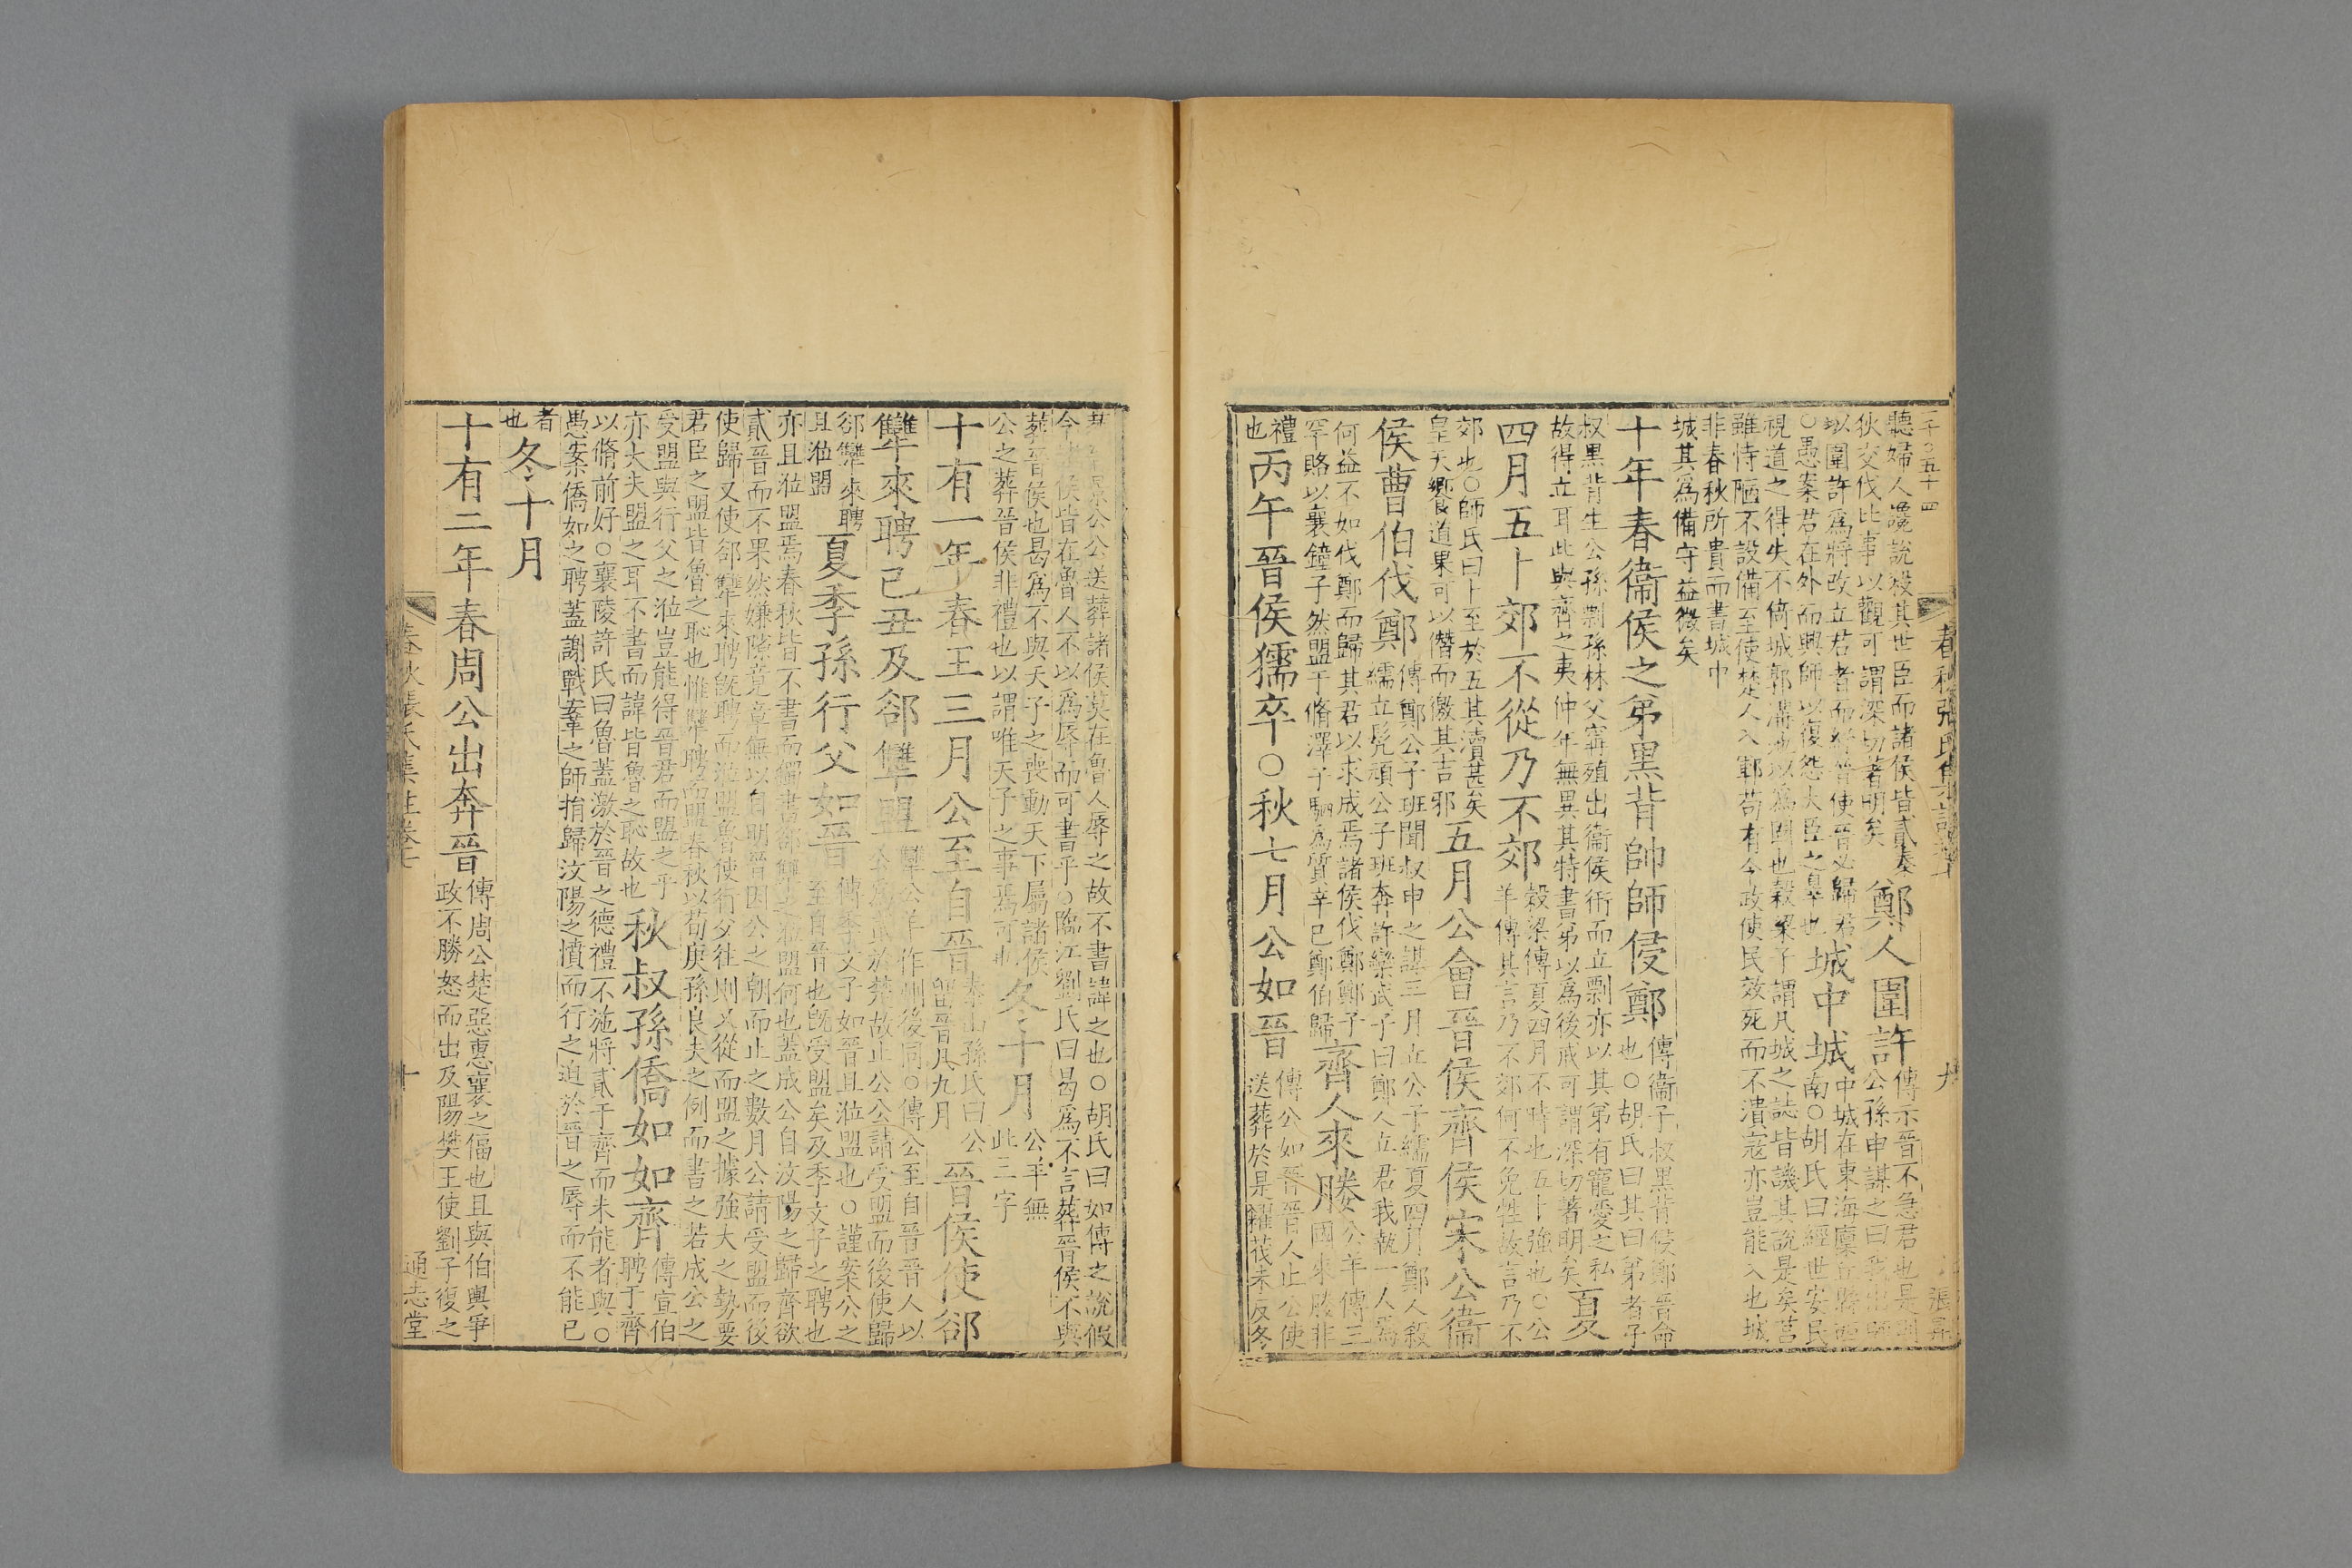 二千〇五十四
春秋張氏集註卷七 九 張昇
聽婦人讒說殺其世臣而諸侯皆貳奉
狄交伐比事以觀可謂深切著明矣
鄭人圍許
傳示晉不急君也是則
公孫申謀之曰我出師
以圍許爲將改立君者而紓晉使晉必歸君
○愚案君在外而興師以復怨大臣之辠也
城中城
中城在東海廩丘縣西
南○胡氏曰經世安民
視道之得失不倚城郭溝池以爲固也穀梁子謂凡城之誌皆譏其說是矣莒
雖恃陋不設備至使楚人入鄆苟有令政使民效死而不潰寇亦豈能入也城
非春秋所貴而書城中
城其爲備守益微矣
十年春衞侯之弟黑背帥師侵鄭
傳衞子叔黑背侵鄭晉命
也○胡氏曰其曰弟者子
叔黑背生公孫剽孫林父甯殖出衞侯衎而立剽亦以其弟有寵愛之私
故得立耳此與齊之夷仲年無異其特書弟以爲後戒可謂深切著明矣
夏
四月五卜郊不從乃不郊
穀梁傳夏四月不時也五卜強也○公
羊傳其言乃不郊何不免牲故言乃不
郊也○師氏曰卜至於五其瀆甚矣
皇天饗道果可以僭而徼其吉邪
五月公會晉侯齊侯宋公衞
侯曹伯伐鄭
傳鄭公子班聞叔申之謀三月立公子繻夏四月鄭人殺
繻立髠頑公子班奔許欒武子曰鄭人立君我執一人焉
何益不如伐鄭而歸其君以求成焉諸侯伐鄭鄭子
罕賂以襄鐘子然盟于脩澤子駟爲質辛巳鄭伯歸
齊人來媵
公羊傳三
國來媵非
禮
也
丙午晉侯獳卒○秋七月公如晉
傳公如晉晉人止公使
送葬於是糴茷未反冬
葬晉景公公送葬諸侯莫在魯人辱之故不書諱之也○胡氏曰如傳之說假
令諸侯皆在魯人不以爲辱而可書乎○臨江劉氏曰曷爲不言葬晉侯不與
葬晉侯也曷爲不與天子之喪動天下屬諸侯
公之葬晉侯非禮也以謂唯天子之事焉可也
冬十月
公羊無
此三字
十有一年春王三月公至自晉
泰山孫氏曰公
留晉凡九月
晉侯使郤
犫來聘己丑及郤犫盟
犫公羊作州後同○傳公至自晉晉人以
公爲貳於楚故止公公請受盟而後使歸
郤犫來聘
且涖盟
夏季孫行父如晉
傳季文子如晉且涖盟也○謹案公之
至自晉也旣受盟矣及季文子之聘也
亦且涖盟焉春秋皆不書而獨書郤犫之涖盟何也蓋成公自汶陽之歸齊欲
貳晉而不果然嫌隙竟章無以自明晉因公之朝而止之數月公請受盟而後
使歸又使郤犫來聘旣聘而涖盟魯使行父往則又從而盟之據強大之勢要
君臣之盟皆魯之恥也惟犫聘而盟春秋以荀庚孫良夫之例而書之若成公之
受盟與行父之涖豈能得晉君而盟之乎
亦大夫盟之耳不書而諱皆魯之恥故也
秋叔孫僑如如齊
傳宣伯
聘于齊
以脩前好○襄陵許氏曰魯蓋激於晉之德禮不施將貳于齊而未能者與○
愚案僑如之聘蓋謝戰鞌之師捐歸汶陽之憤而行之迫於晉之辱而不能已
者
也
冬十月
十有二年春周公出奔晉
傳周公楚惡惠襄之偪也且與伯輿爭
政不勝怒而出及陽樊王使劉子復之
春秋張氏集註卷七 十 通志堂